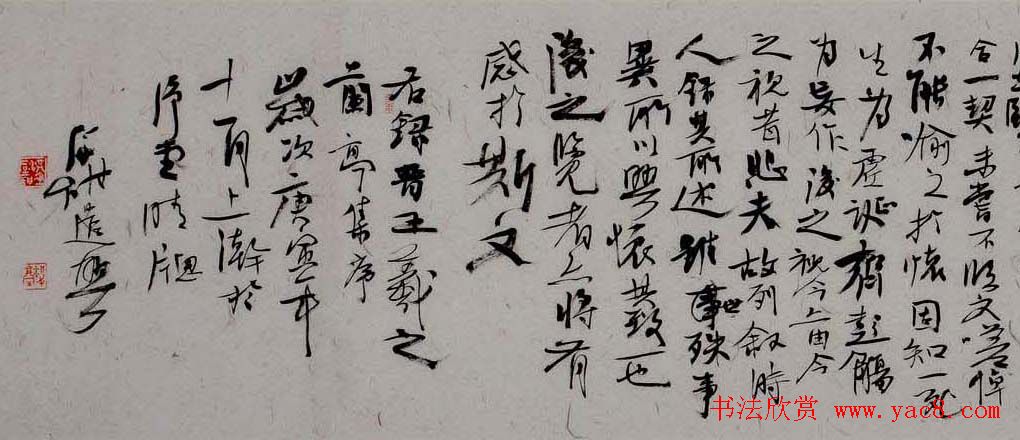 合一契未嘗不临文嗟悼
不能喻之於懷固知一死
生为虚诞齊彭殤
为妄作後之視今亦由今
之視昔悲夫故列叙時
人錄其所述雖事世殊事
異所以興懷其致一也
後之覽者亦將有
感於斯文
右錄晋王羲之
蘭亭集序
歲次庚寅年
十一月上澣於
堂晴牕
书法欣赏 www.yac8.com